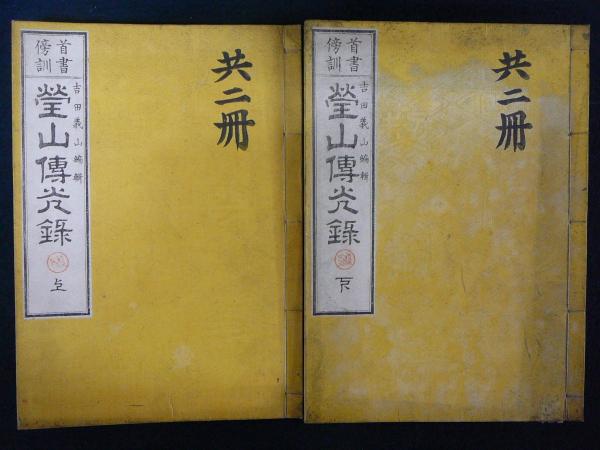 首書
傍訓
吉田義山編輯
瑩山傳光錄
上
共二冊
首書
傍訓
吉田義山編輯
瑩山傳光錄
下
共二冊